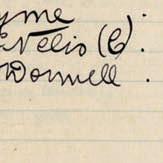 yme
Nelis (C).
Donnell.